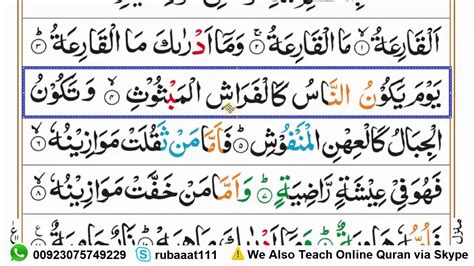 اَلْقَارِعَةُ ۙ﴿۱﴾ مَا الْقَارِعَةُ ۚ﴿۲﴾ وَمَاۤ اَدْرٰىكَ مَا الْقَارِعَةُ ؕ﴿۳﴾
يَوْمَ يَكُوْنُ النَّاسُ كَالْفَرَاشِ الْمَبْثُوْثِ ۙ﴿۴﴾ وَتَكُوْنُ
الْجِبَالُ كَالْعِهْنِ الْمَنْفُوْشِ ؕ﴿۵﴾ فَاَمَّا مَنْ ثَقُلَتْ مَوَازِيْنُهٗ ۙ﴿۶﴾
فَهُوَ فِيْ عِيْشَةٍ رَّاضِيَةٍ ؕ﴿۷﴾ وَاَمَّا مَنْ خَفَّتْ مَوَازِيْنُهٗ ۙ﴿۸﴾
00923075749229 rubaaat111 We Also Teach Online Quran via Skype